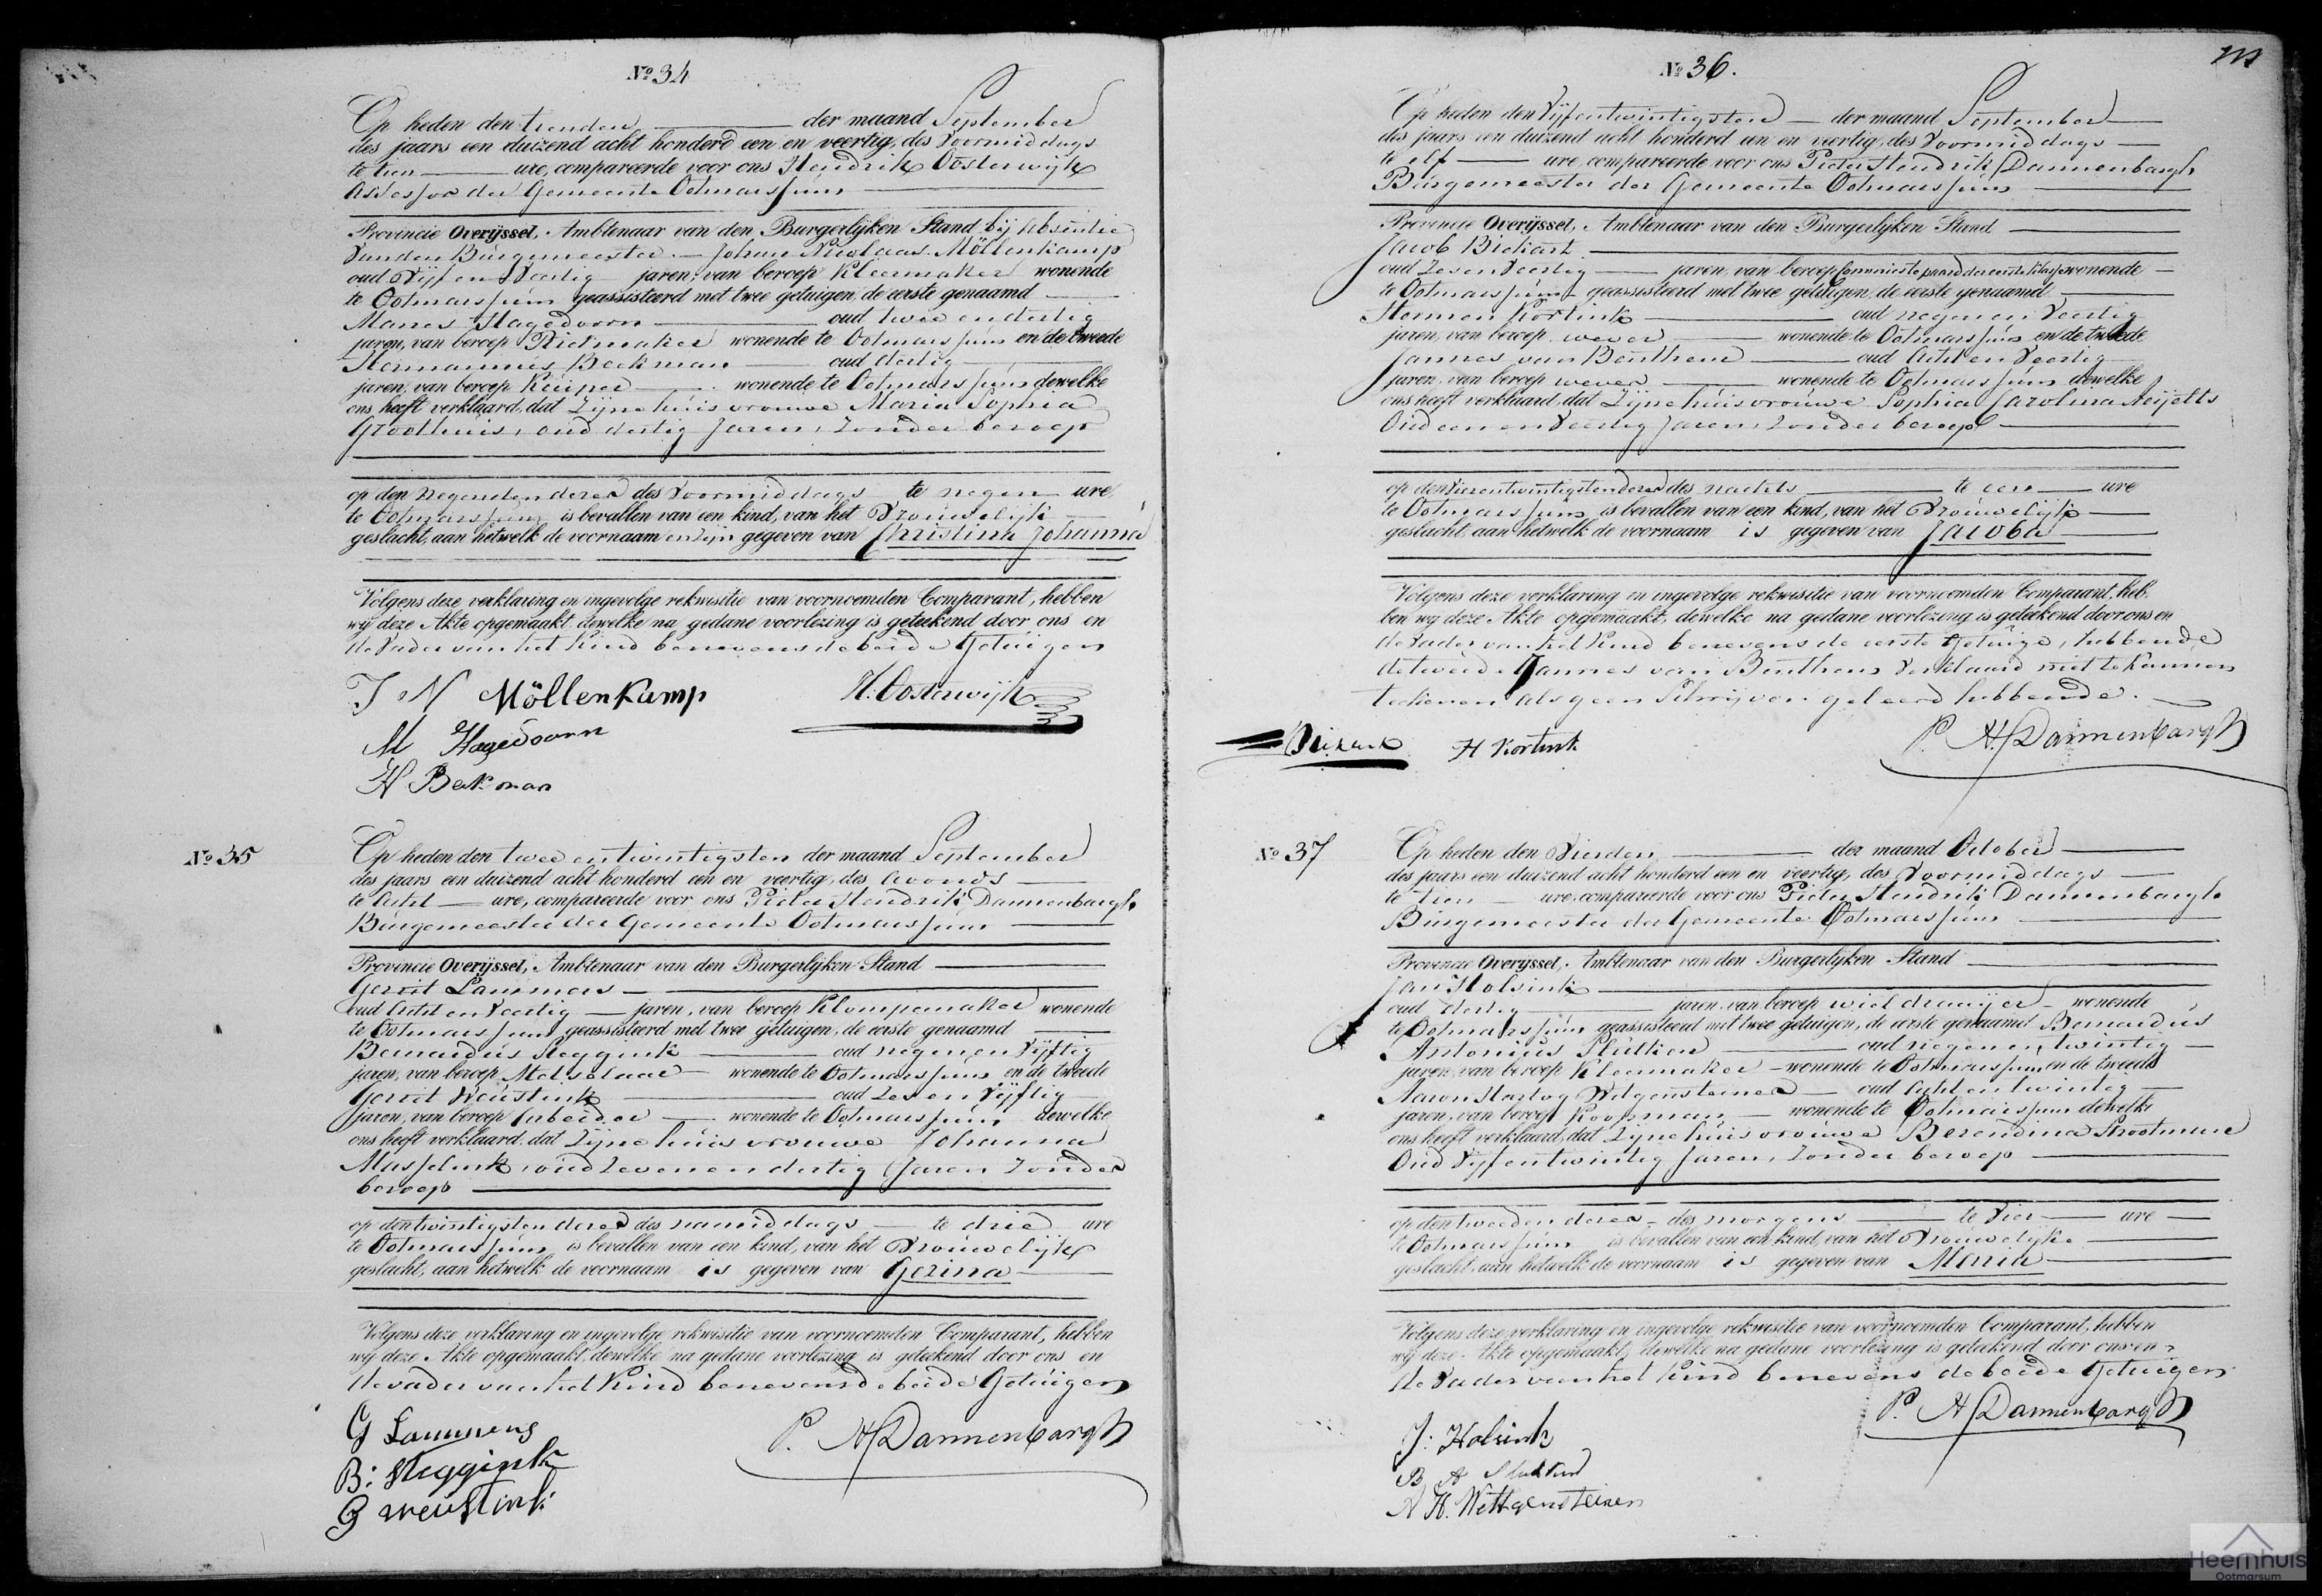 Nº 34
Op heden den tienden der maand September
des jaars een duizend acht honderd een en veertig, des Voormiddags
te tien ure, compareerde voor ons Hendrik Oosterwijk
Assessor der Gemeente Ootmarssum
Provincie Overijssel, Ambtenaar van den Burgerlijken Stand bij absentie
van den Burgemeester Johan Nicolaas Möllenkamp
oud Vijf en Veertig jaren, van beroep Kleermaker wonende
te Ootmarssum geassisteerd met twee getuigen, de eerste genaamd
Mannes Hagedoorn oud twee en dertig
jaren, van beroep Rietmaker wonende te Ootmarssum en de tweede
Hermannus Beekman oud dertig
jaren, van beroep Kuiper wonende te Ootmarssum dewelke
ons heeft verklaard, dat Zijne huisvrouwe Maria Sophia
Groothuis, oud dertig Jaren, Zonder beroep
op den negenden dezer des Voormiddags te negen ure,
te Ootmarssum is bevallen van een kind, van het Vrouwelijk
geslacht, aan hetwelk de voornaam en zijn gegeven van Christina Johanna
Volgens deze verklaring en ingevolge rekwisitie van voornoemden Comparant, hebben
wij deze Akte opgemaakt, dewelke na gedane voorlezing is geteekend door ons en
de Vader van het Kind benevens de beide Getuigen
J N Möllenkamp H. Oosterwijk
M Hagedoorn
H Bekman
Nº 35
Op heden den twee en twintigsten der maand September
des jaars een duizend acht honderd een en veertig, des Avonds
te Acht ure, compareerde voor ons Pieter Hendrik Dannenbargh
Burgemeester der Gemeente Ootmarssum
Provincie Overijssel, Ambtenaar van den Burgerlijken Stand
Gerrit Lammers
oud Acht en Veertig jaren, van beroep Klompemaker wonende
te Ootmarssum geassisteerd met twee getuigen, de eerste genaamd
Bernardus Steggink oud negen en Vijftig
jaren, van beroep Metselaar wonende te Ootmarssum en de tweede
Gerrit Weustink oud Zes en Vijftig
jaren, van beroep Arbeider wonende te Ootmarssum dewelke
ons heeft verklaard, dat Zijne huisvrouwe Johanna
Musselink, oud Zeven en dertig Jaren Zonder
beroep
op den twintigsten dezer des namiddags te drie ure
te Ootmarssum is bevallen van een kind, van het Vrouwelijk
geslacht, aan hetwelk de voornaam is gegeven van Gezina
Volgens deze verklaring en ingevolge rekwisitie van voornoemden Comparant, hebben
wij deze Akte opgemaakt, dewelke na gedane voorlezing is geteekend door ons en
de vader van het Kind benevens de beide Getuigen
G Lammers P. H Dannenbargh
B: Steggink
G weustink
Nº 36.
Op heden den Vijfentwintigsten der maand September
des jaars een duizend acht honderd een en veertig, des Voormiddags
te elf ure, compareerde voor ons Pieter Hendrik Dannenbargh
Burgemeester der Gemeente Ootmarssum
Provincie Overijssel, Ambtenaar van den Burgerlijken Stand
Jacob Bickart
oud Zes en Veertig jaren, van beroep Commies te paard der eerste Klasse wonende
te Ootmarssum geassisteerd met twee getuigen, de eerste genaamd
Hermen Kortink oud negen en Veertig
jaren, van beroep wever wonende te Ootmarssum en de tweede
Jannes van Benthem oud Acht en Veertig
jaren, van beroep wever wonende te Ootmarssum dewelke
ons heeft verklaard, dat Zijne huisvrouwe Sophia Carolina
Oud een en Veertig Jaren, Zonder beroep
op den Vierentwintigsten dezer des nachts te een ure
te Ootmarssum is bevallen van een kind, van het Vrouwelijk
geslacht, aan hetwelk de voornaam is gegeven van Jacoba
Volgens deze verklaring en ingevolge rekwisitie van voornoemden Comparant, heb-
ben wij deze Akte opgemaakt, dewelke na gedane voorlezing is geteekend door ons en
de Vader van het Kind benevens de eerste Getuige, hebbende
de tweede Jannes van Benthem Verklaard niet te kunnen
teekenen als geen Schrijven geleerd hebbende.
Bickart H Kortink P. H Dannenbargh
Nº 37
Op heden den Vierden der maand October
des jaars een duizend acht honderd een en veertig, des Voormiddags
te tien ure, compareerde voor ons Pieter Hendrik Dannenbargh
Burgemeester der Gemeente Ootmarssum
Provincie Overijssel, Ambtenaar van den Burgerlijken Stand
Jan Holsink
oud dertig jaren, van beroep wieldraaijer wonende
te Ootmarssum geassisteerd met twee getuigen, de eerste genaamd Bernardus
Antonius oud negen en twintig
jaren, van beroep Kleermaker wonende te Ootmarssum en de tweede
Aaron Hartog oud Acht en twintig
jaren, van beroep Koopman wonende te Ootmarssum dewelke
ons heeft verklaard, dat Zijne huisvrouwe Berendina Strootman
Oud Vijf en twintig Jaren, Zonder beroep
op den tweeden dezer des morgens te Vier ure
te Ootmarssum is bevallen van een kind, van het Vrouwelijke
geslacht, aan hetwelk de voornaam is gegeven van Maria
Volgens deze verklaring en ingevolge rekwisitie van voornoemden Comparant, hebben
wij deze Akte opgemaakt, dewelke na gedane voorlezing is geteekend door ons en
de Vader van het Kind benevens de beide Getuigen
J: Holsink P. H Dannenbargh
B A
A H. Wittgensteiner
Heemhuis
Ootmarsum